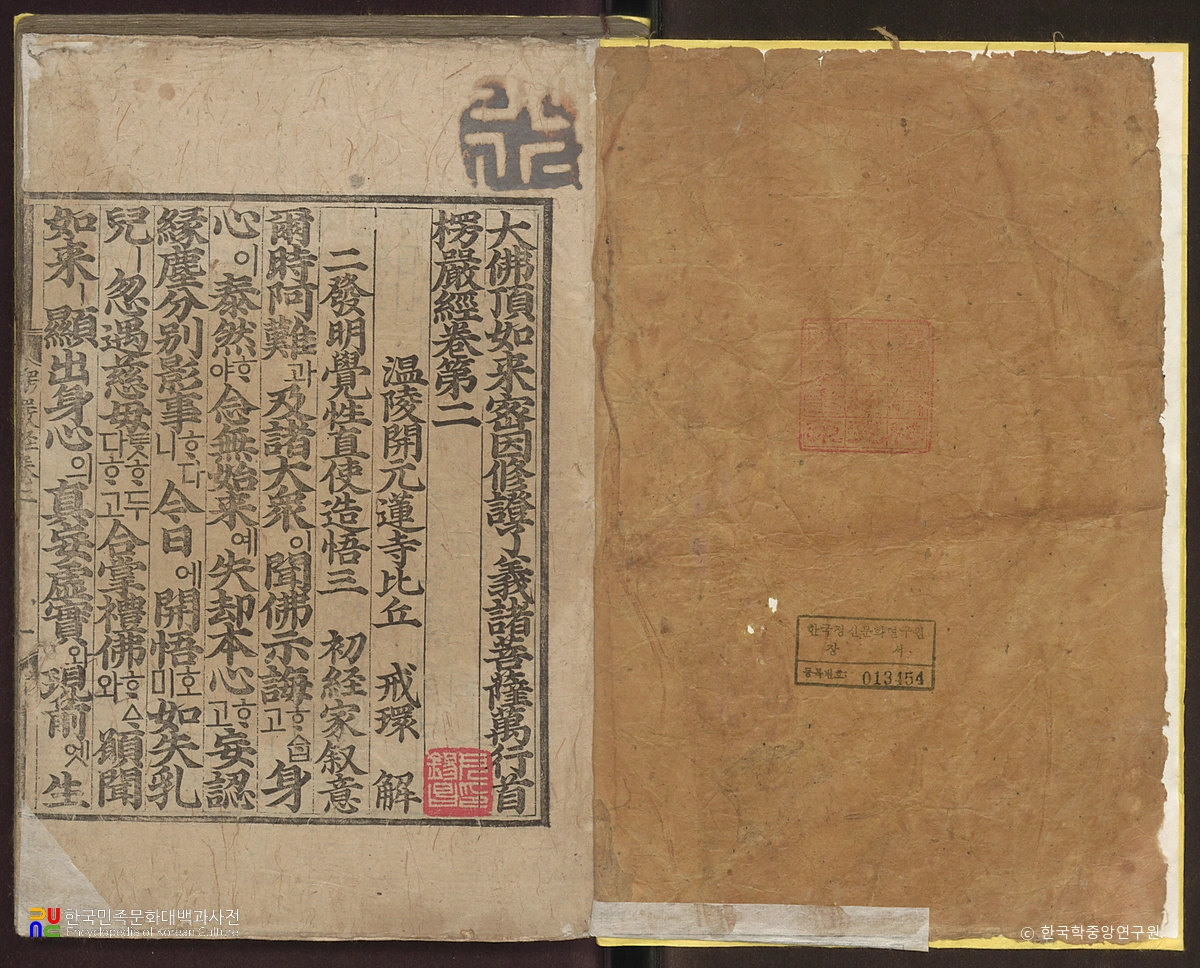 大佛頂如来密因修證了義諸菩薩萬行首
楞嚴經卷第二
温陵開元蓮寺比丘 戒環 解
二發明覺性直使造悟三 初経家叙意
爾時阿難과及諸大衆이聞佛示誨ᄒᆞᅀᆞᆸ고身
心이泰然ᄒᆞ야念無始来예失却本心ᄒᆞ고妄認
緣塵分别影事ᄒᆞ다니今日에開悟호미如失乳
兒ㅣ忽遇慈母듯ᄒᆞ두다ᄒᆞ고合掌禮佛ᄒᆞᅀᆞ와願聞
如来ㅣ顯出身心의真妄虛實와現前엣生
한국정신문화연구원
장 서
등록번호: 013454
한국민족문화대백과사전
Encyclopedia of Korean Culture
© 한국학중앙연구원